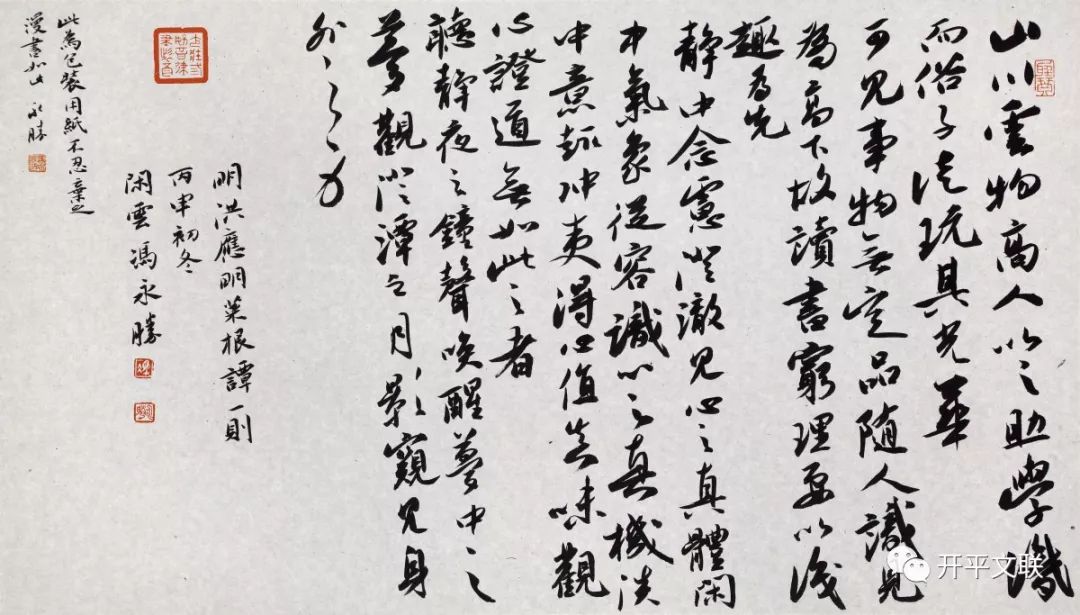 山川雲物高人以之助學識
而俗子徒玩其光華
可見事物無定品隨人識見
為高下故讀書窮理要以識
趣為先
静中念慮澄澈見心之真體閑
中氣象從容識心之真機淡
中意趣冲夷得心值真味觀
心證道無如此之者
聽静夜之鐘聲喚醒夢中之
夢觀澄潭之月影窺見身
外之身
明洪應明菜根譚一則
丙申初冬
閑雲馮永勝
此為包裝用紙不忍棄之
漫書如此 永勝
开平文联